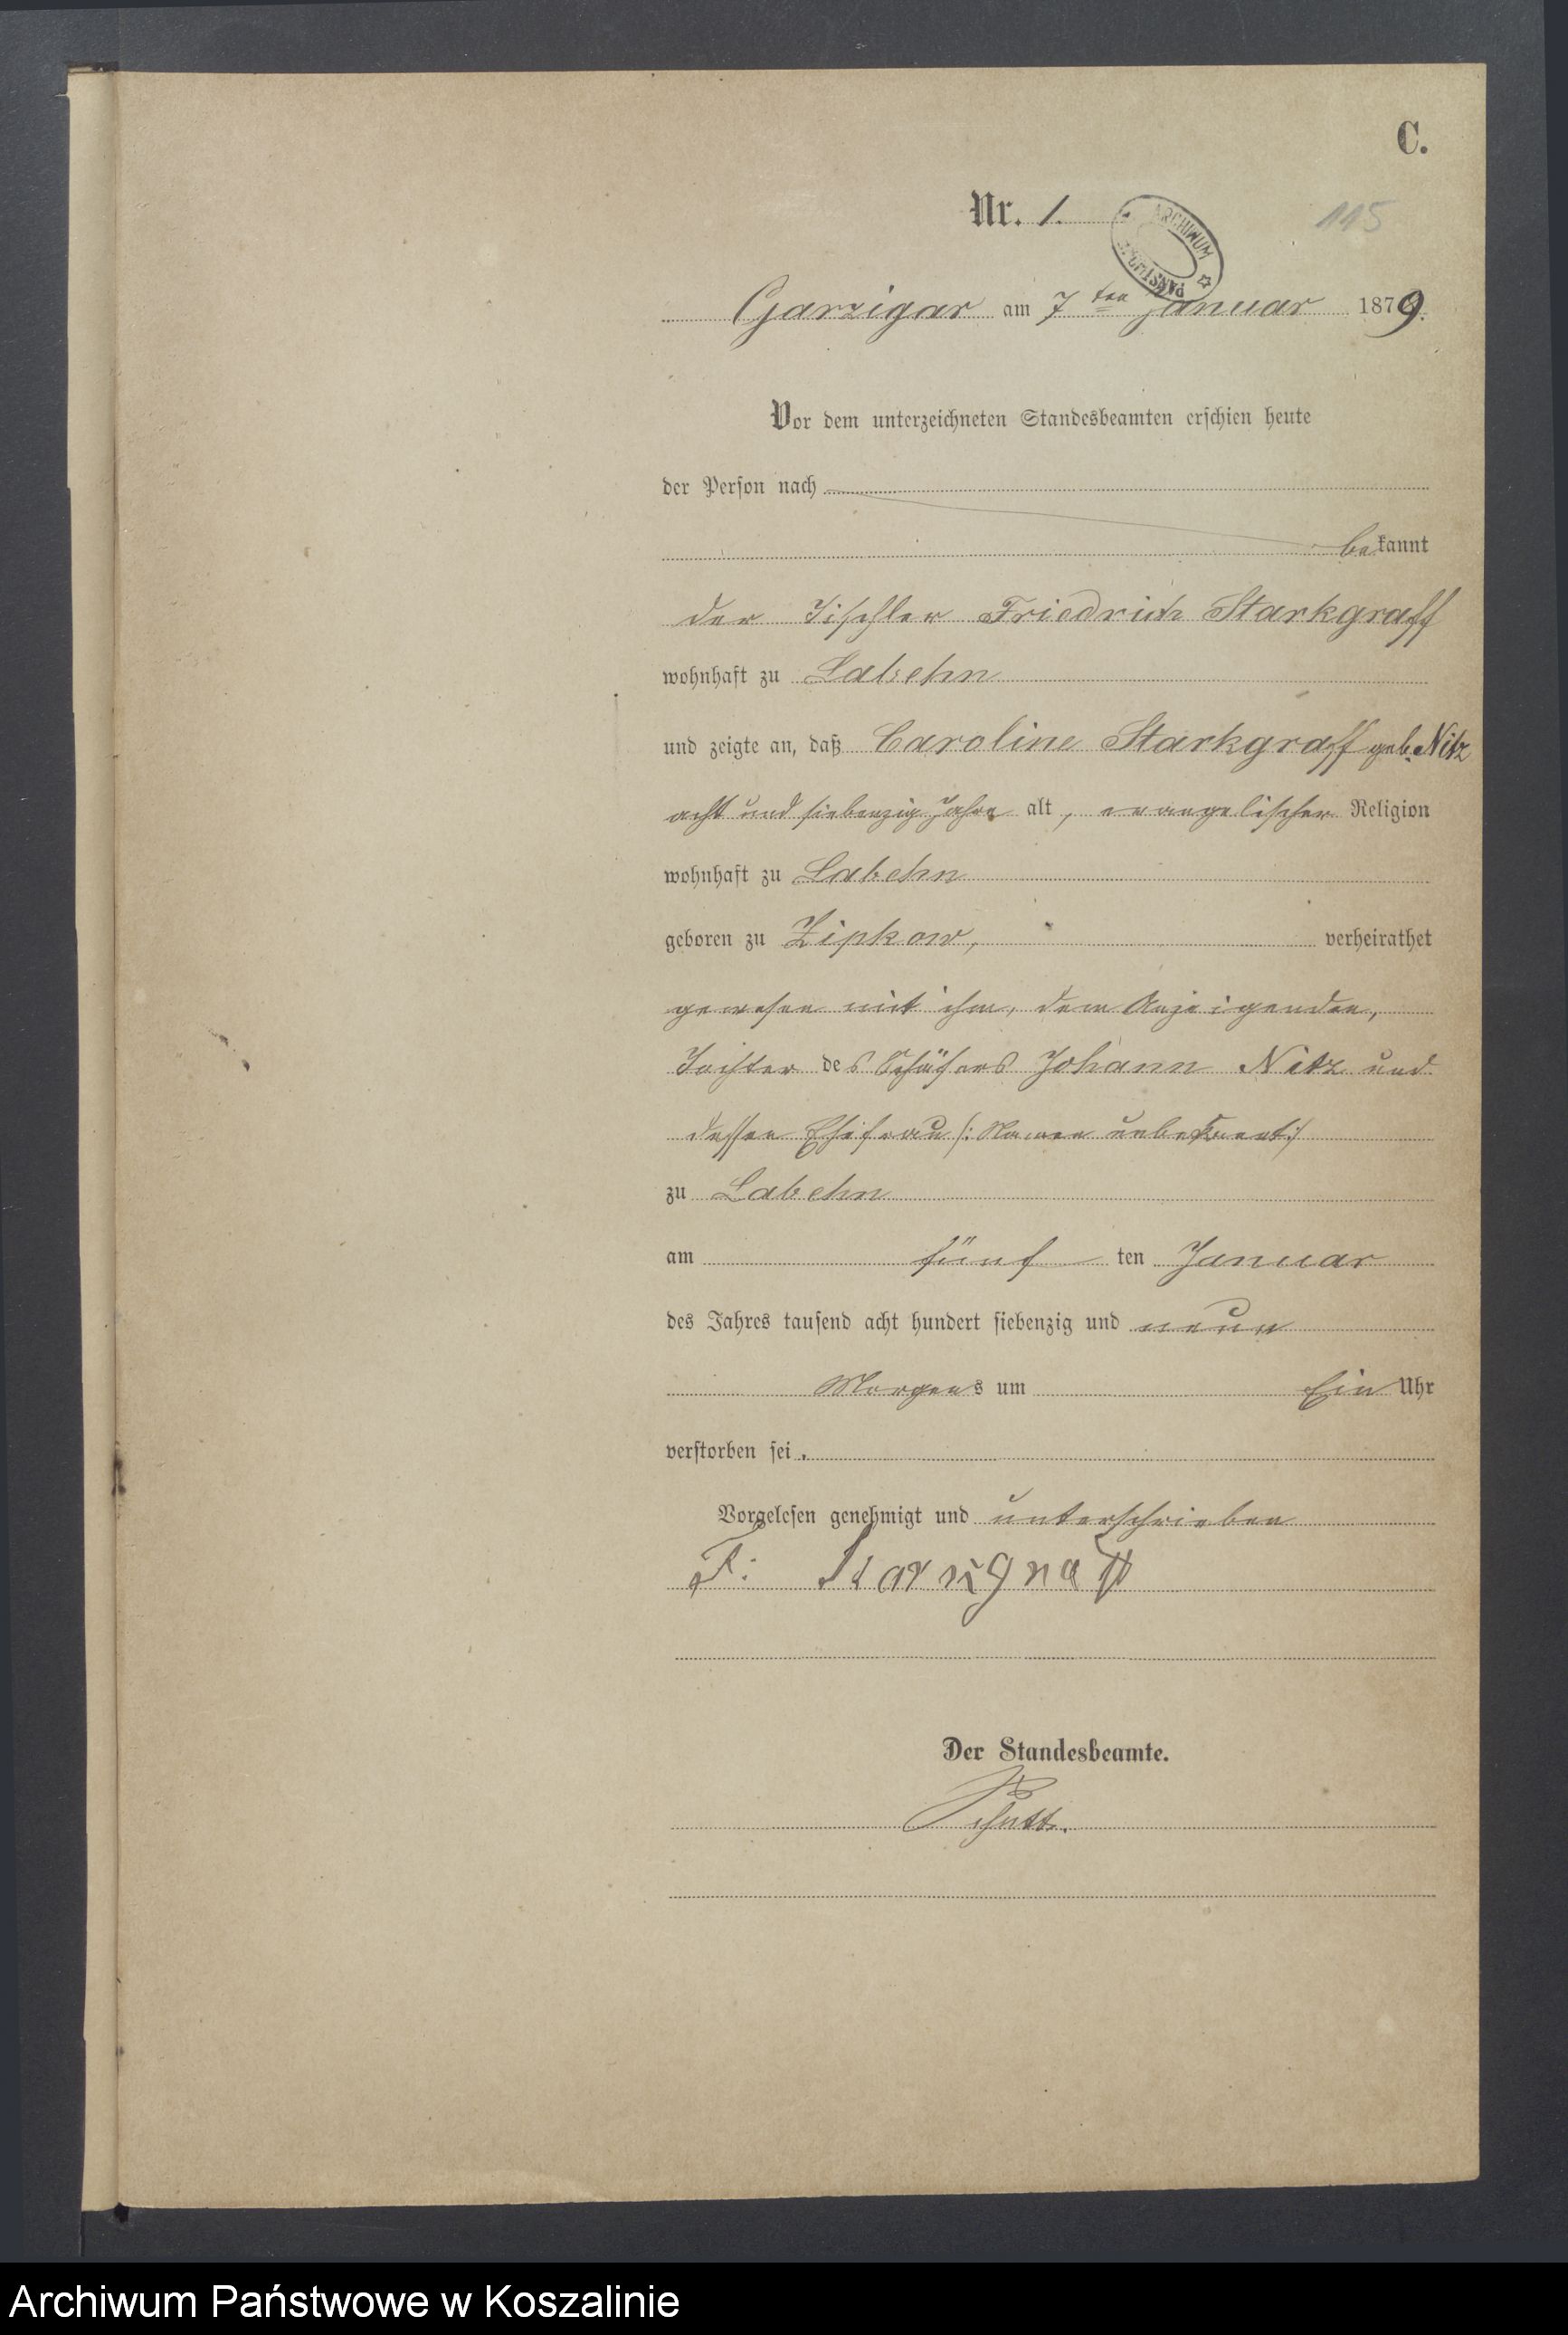 C.
Nr. 1.
115
ARCHIWUM PAŃSTW.
Garzigar am 7ten Januar 1879.
Vor dem unterzeichneten Standesbeamten erschien heute
der Person nach
bekannt
der Tischler Friedrich Starkgraff
wohnhaft zu Labehn
und zeigte an, daß Caroline Starkgraff geb. Nitz
acht und siebenzig Jahre alt, evangelischer Religion
wohnhaft zu Labehn
geboren zu Zipkow, verheirathet
gewesen mit ihm, dem Anzeigenden,
Tochter des Schäfers Johann Nitz und
dessen Ehefrau /: Namen unbekannt :/
zu Labehn
am fünf ten Januar
des Jahres tausend acht hundert siebenzig und neun
Morgens um Ein Uhr
verstorben sei.
Vorgelesen genehmigt und unterschrieben
F:
Der Standesbeamte.
Archiwum Państwowe w Koszalinie